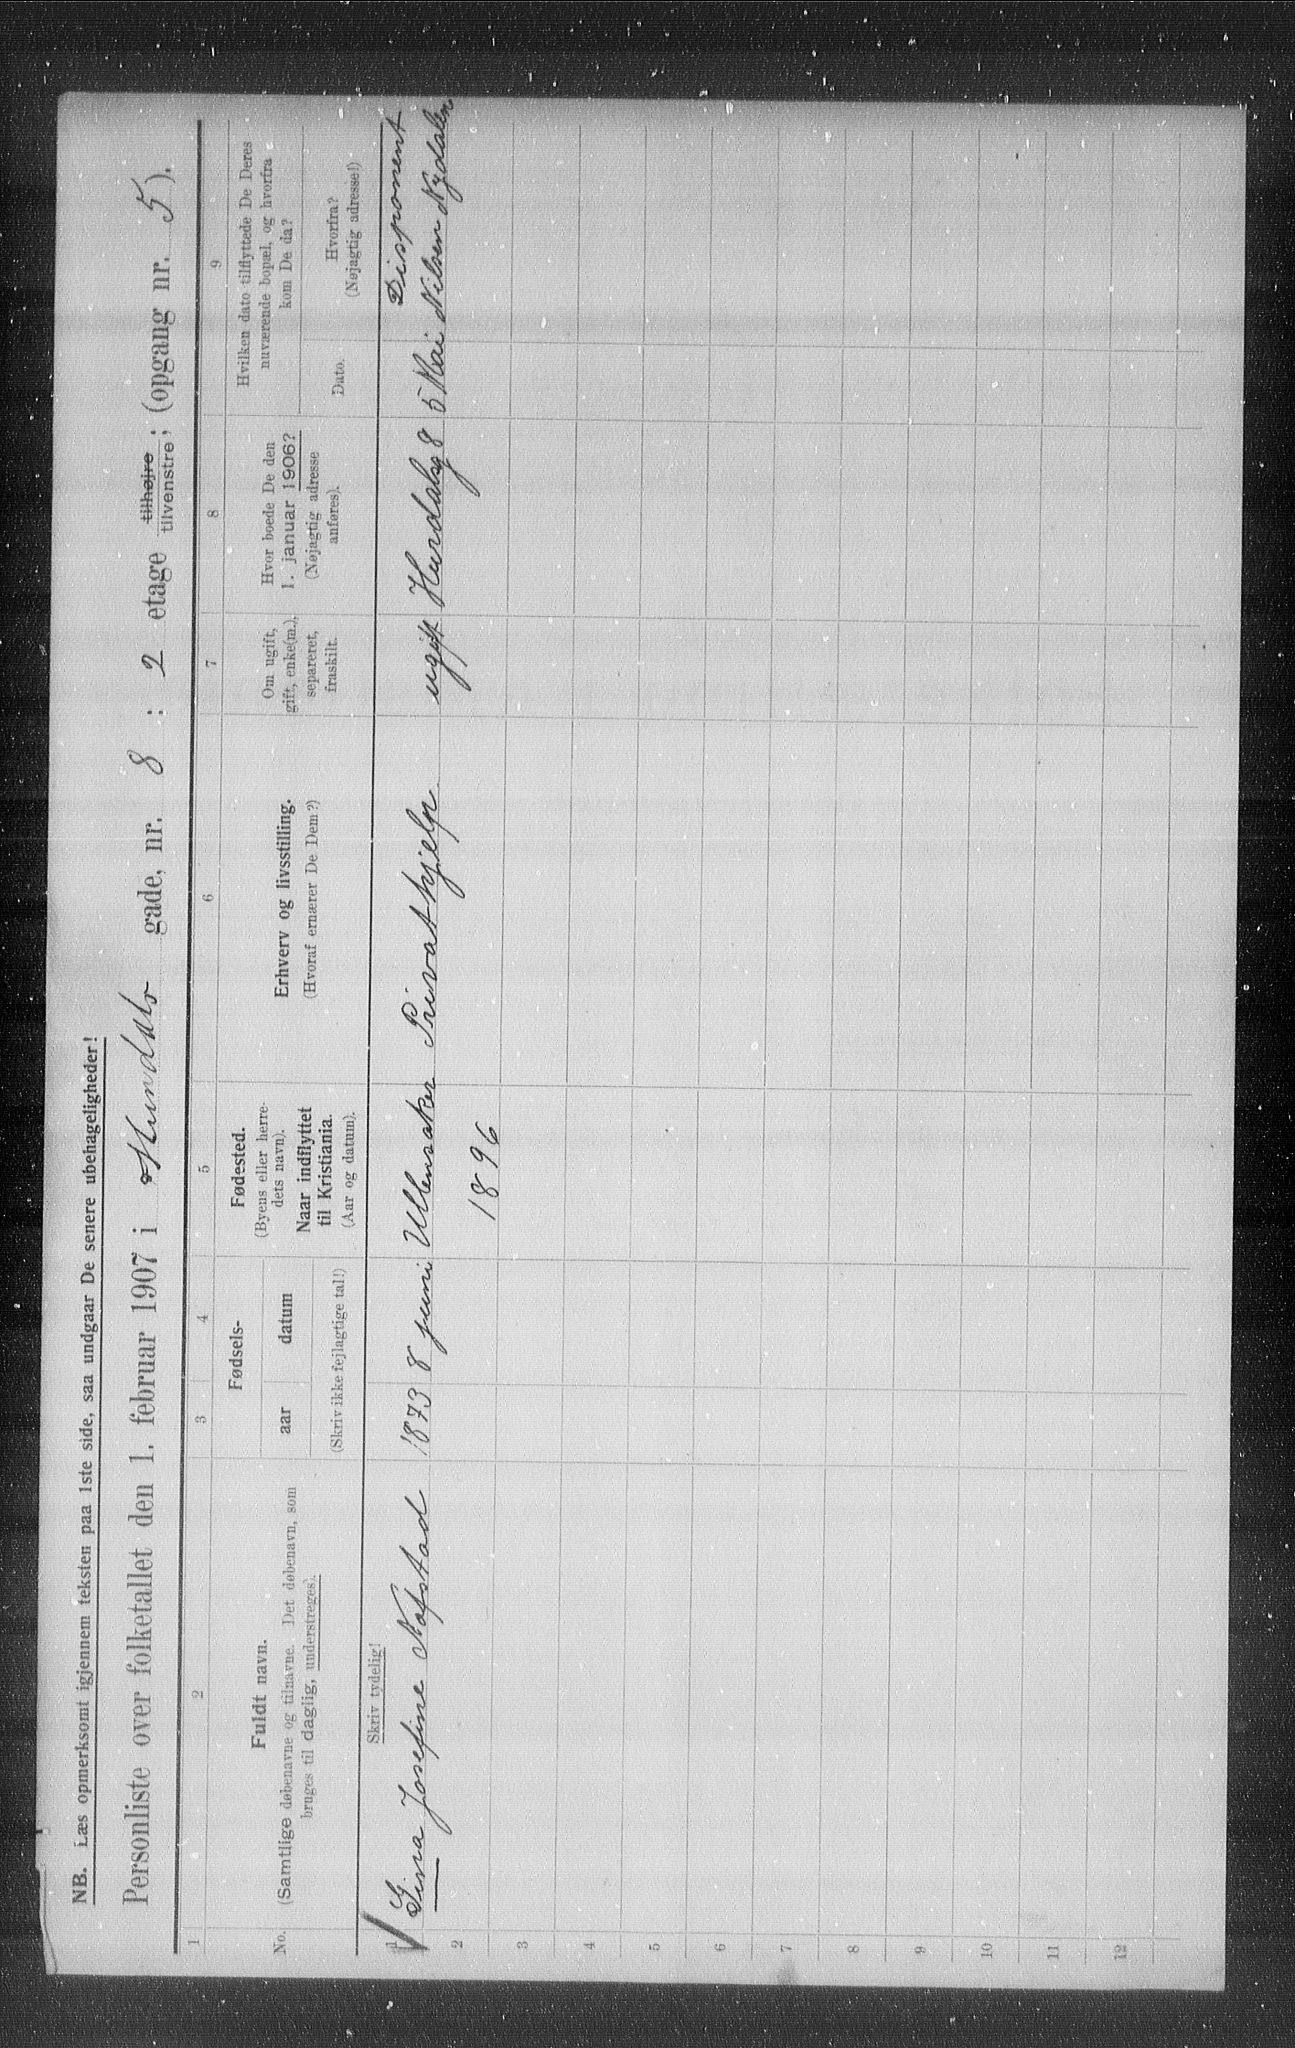 NB. Læs opmerksomt igjennem teksten paa 1ste side, saa undgaar De senere ubehageligheder!
Personliste over folketallet den 1. februar 1907 i Hurdals gade, nr. 8 : 2 etage tilhøjre tilvenstre; (opgang nr. 5).
1 2 3 4 5 6 7 8 9
No.
Fuldt navn.
(Samtlige døbenavne og tilnavne. Det døbenavn, som
bruges til daglig, understreges).
Fødsels-
aar datum
(Skriv ikke fejlagtige tal!)
Fødested.
(Byens eller herre-
dets navn).
Naar indflyttet
til Kristiania.
(Aar og datum).
Erhverv og livsstilling.
(Hvoraf ernærer De Dem?)
Om ugift,
gift, enke(m.),
separeret,
fraskilt.
Hvor boede De den
1. januar 1906?
(Nøjagtig adresse
anføres).
Hvilken dato tilflyttede De Deres
nuværende bopæl, og hvorfra
kom De da?
Dato.
Hvorfra?
(Nøjagtig adresse!)
Skriv tydelig!
Disponent
1 Gina Josefine Nafstad 1873 8 juni Ullensaker Privat hjelp ugift Hurdalsg 8 5 Mai Nilsen Nydalen
2 1896
3
4
5
6
7
8
9
10
11
12